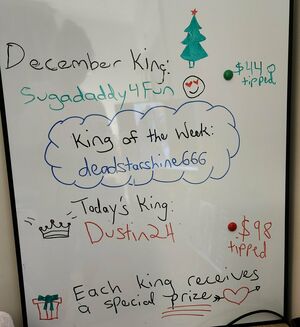 December King:
Sugadaddy4Fun
$44
tipped
King of the Week:
deadstarshine666
Today's King:
Dustin24
$98
tipped
Each king receives
a special prize